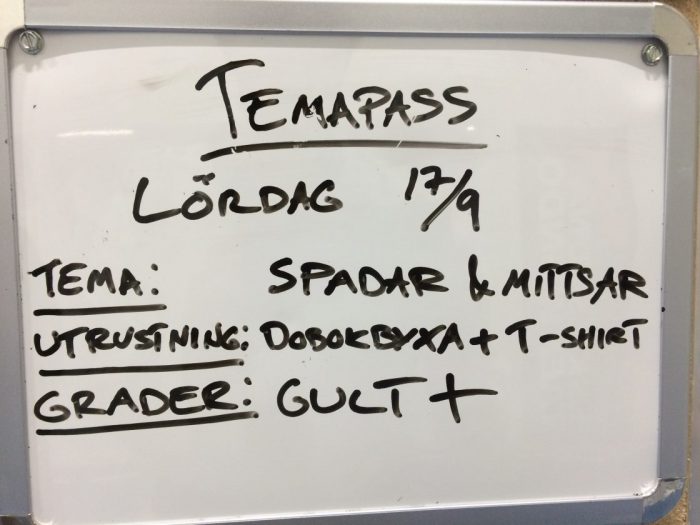 TEMAPASS
LÖRDAG 17/9
TEMA: SPADAR & MITTSAR
UTRUSTNING: DOBOKBYXA + T-SHIRT
GRADER: GULT +